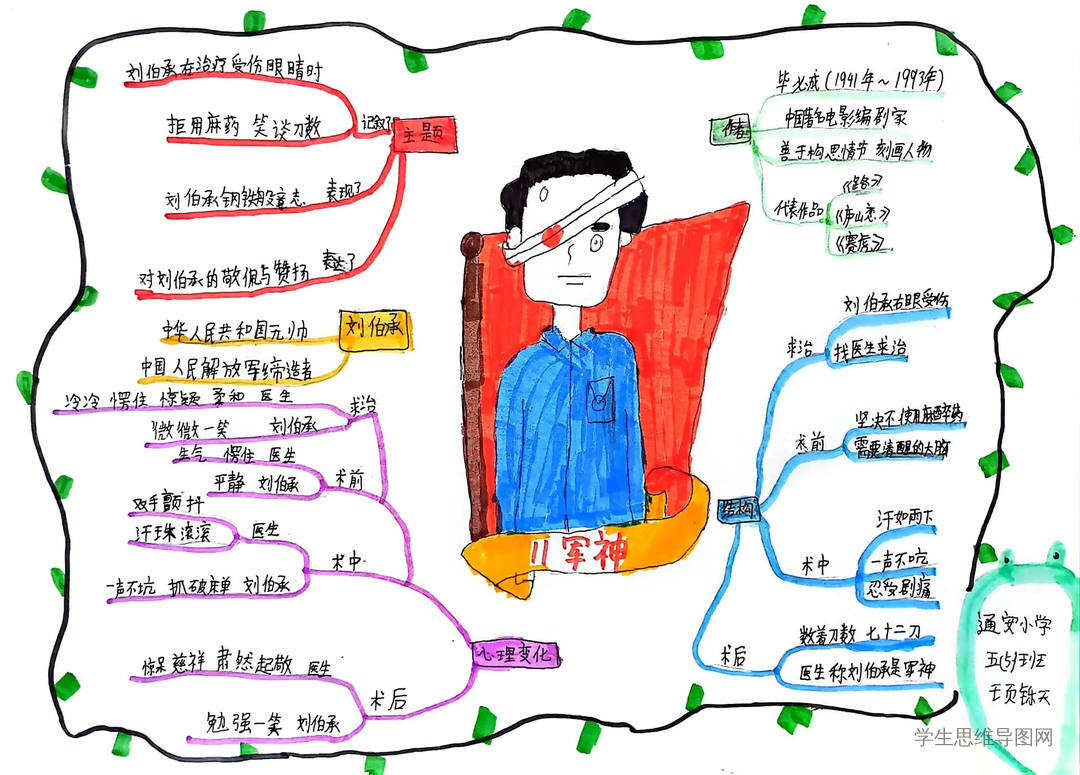 主题
记叙了
刘伯承在治疗受伤眼睛时
拒用麻药 笑谈刀数
表现了
刘伯承钢铁般意志
表达了
对刘伯承的敬佩与赞扬
刘伯承
中华人民共和国元帅
中国人民解放军缔造者
心理变化
求治
冷冷 愣住 惊疑 柔和 医生
微微一笑 刘伯承
术前
生气 愣住 医生
平静 刘伯承
术中
双手颤抖
汗珠滚滚
医生
一声不吭 抓破床单 刘伯承
术后
惊呆 慈祥 肃然起敬 医生
勉强一笑 刘伯承
11 军神
作者
毕必成(1941年~1993年)
中国著名电影编剧家
善于构思情节 刻画人物
代表作品
《庐山恋》
《赛虎》
结构
求治
刘伯承右眼受伤
找医生求治
术前
坚决不使用麻醉药
需要清醒的大脑
术中
汗如雨下
一声不吭
忍受剧痛
术后
数着刀数 七十二刀
医生称刘伯承是军神
通安小学
五(5)班
学生思维导图网